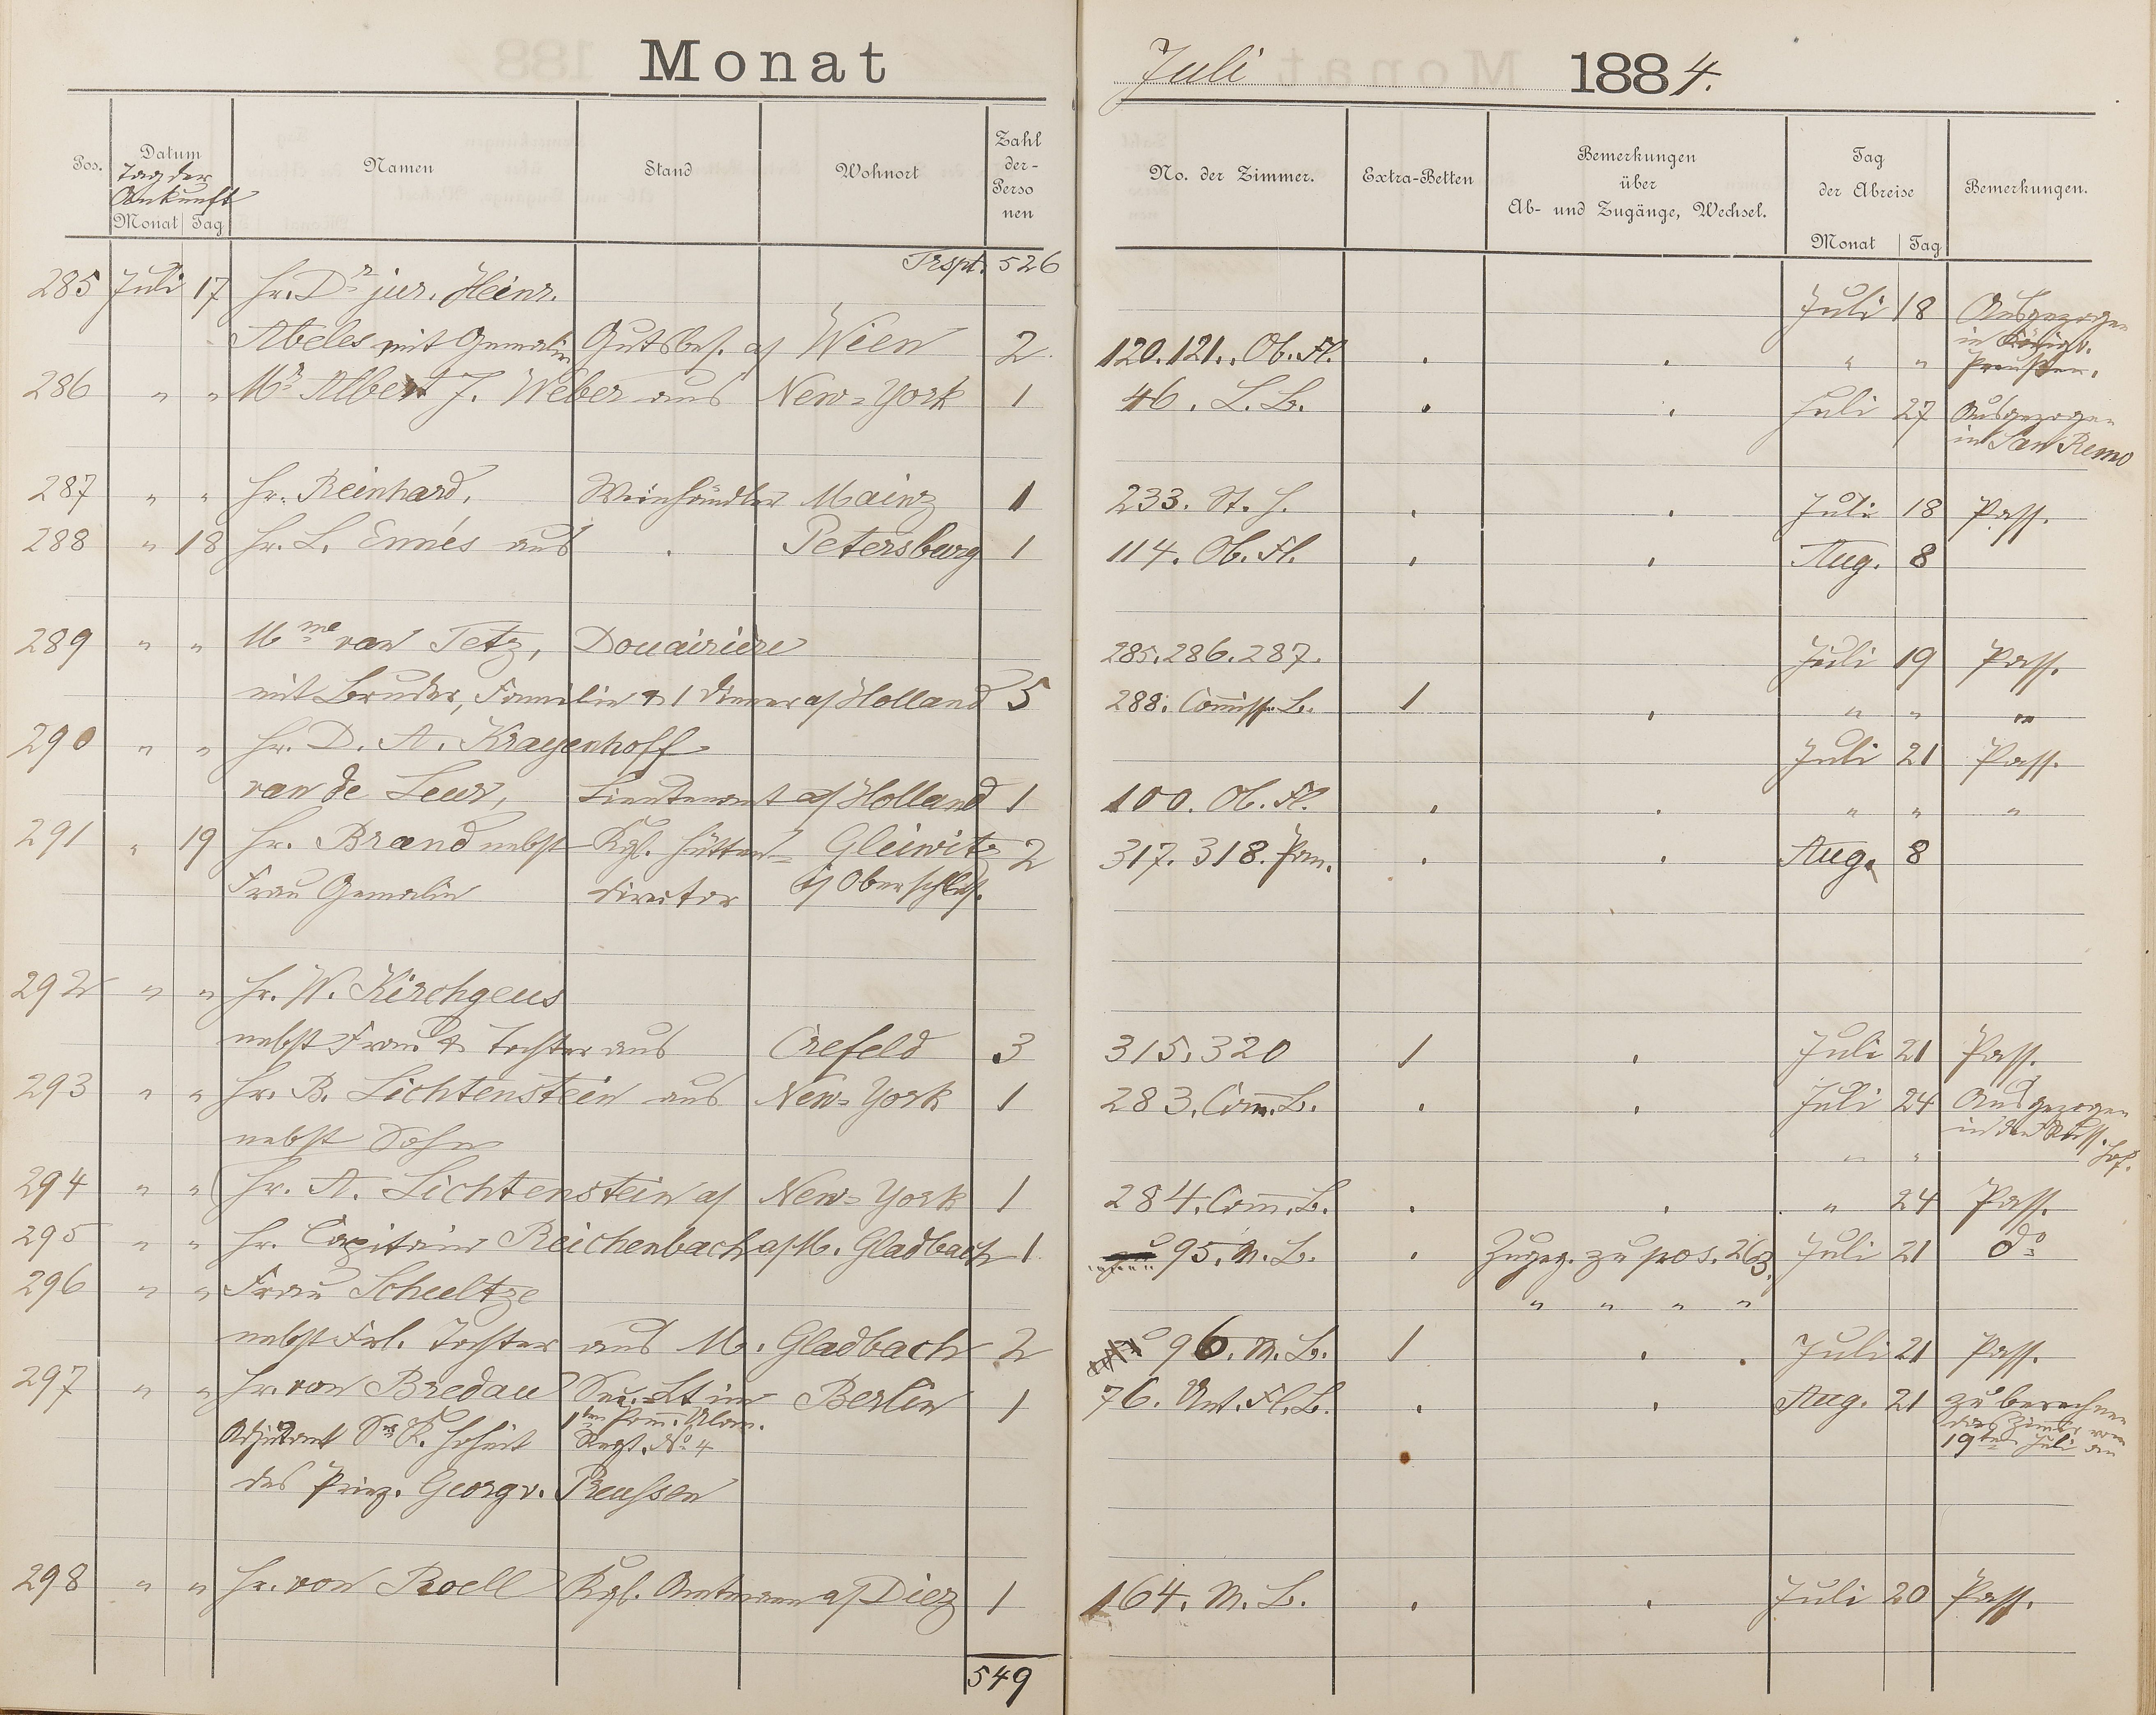 Monat
Juli 1884.
Pos. Datum Namen Stand Wohnort Zahl der Personen
Tag der Ankunft
Monat Tag
No. der Zimmer. Extra-Betten Bemerkungen über Ab- und Zugänge, Wechsel. Tag der Abreise Bemerkungen.
Monat Tag
Trspt. 526
285 Juli 17 Hr. Dr jur. Heinr. Juli 18 Ausgezogen
Abeles mit Gemalin Gutsbes. a/ Wien 2 120.121. Ob. Fl. . . " " in Königl. Preussen.
286 " " Mr Albert J. Weber aus New-York 1 46. L. B. . . Juli 27 Ausgezogen
in San Remo
287 " " Hr. Reinhard, Weinhändler Mainz 1 233. St. H. . . Juli 18 Pass.
288 " 18 Hr. L. Ennés aus . Petersburg 1 114. Ob. Fl. . . Aug. 8
289 " " Mme van Tetz, Douairière 285.286.287. Juli 19 Pass.
mit Bruder, Familie & 1 Diener a/ Holland 5 288. Commiss. B. 1 . " " "
290 " " Hr. D. A. Krayenhoff Juli 21 Pass.
van de Leur, Lieutenant a/ Holland 1 100. Ob. Fl. . . " " "
291 " 19 Hr. Brand nebst Kgl. Hütten- Gleiwitz 2 317. 318. Pan. . . Aug. 8
Frau Gemalin director i/ Oberschles.
292 " " Hr. W. Kirchgeus
nebst Frau & Tochter aus Crefeld 3 315.320 1 . Juli 21 Pass.
293 " " Hr. B. Lichtenstein aus New-York 1 283. Com. B. . . Juli 24 Ausgezogen
nebst Sohn " " in den Russ. Hof.
294 " " Hr. A. Lichtenstein a/ New-York 1 284. Com. B. . . " 24 Pass.
295 " " Hr. Capitain Reichenbach a/ M. Gladbach 1 95. M. B. . Zugez. zu pos. 263. Juli 21 do
296 " " Frau Schultze " " " "
nebst Frl. Tochter aus M. Gladbach 2 96. M. B. 1 . . Juli 21 Pass.
297 " " Hr. von Bredau Sec. Lt im Berlin 1 76. Unt. Fl. B. . . Aug. 21 zu berechnen
Adjutant Sr K. Hoheit 1ten Pom. Ulan. Regt. No 4 das Zimmer vom 19ten Juli an
des Prinz. Georg v. Preussen
298 " " Hr. von Roell Kgl. Amtmann a/ Diez 1 164. M. B. . . Juli 20 Pass.
549